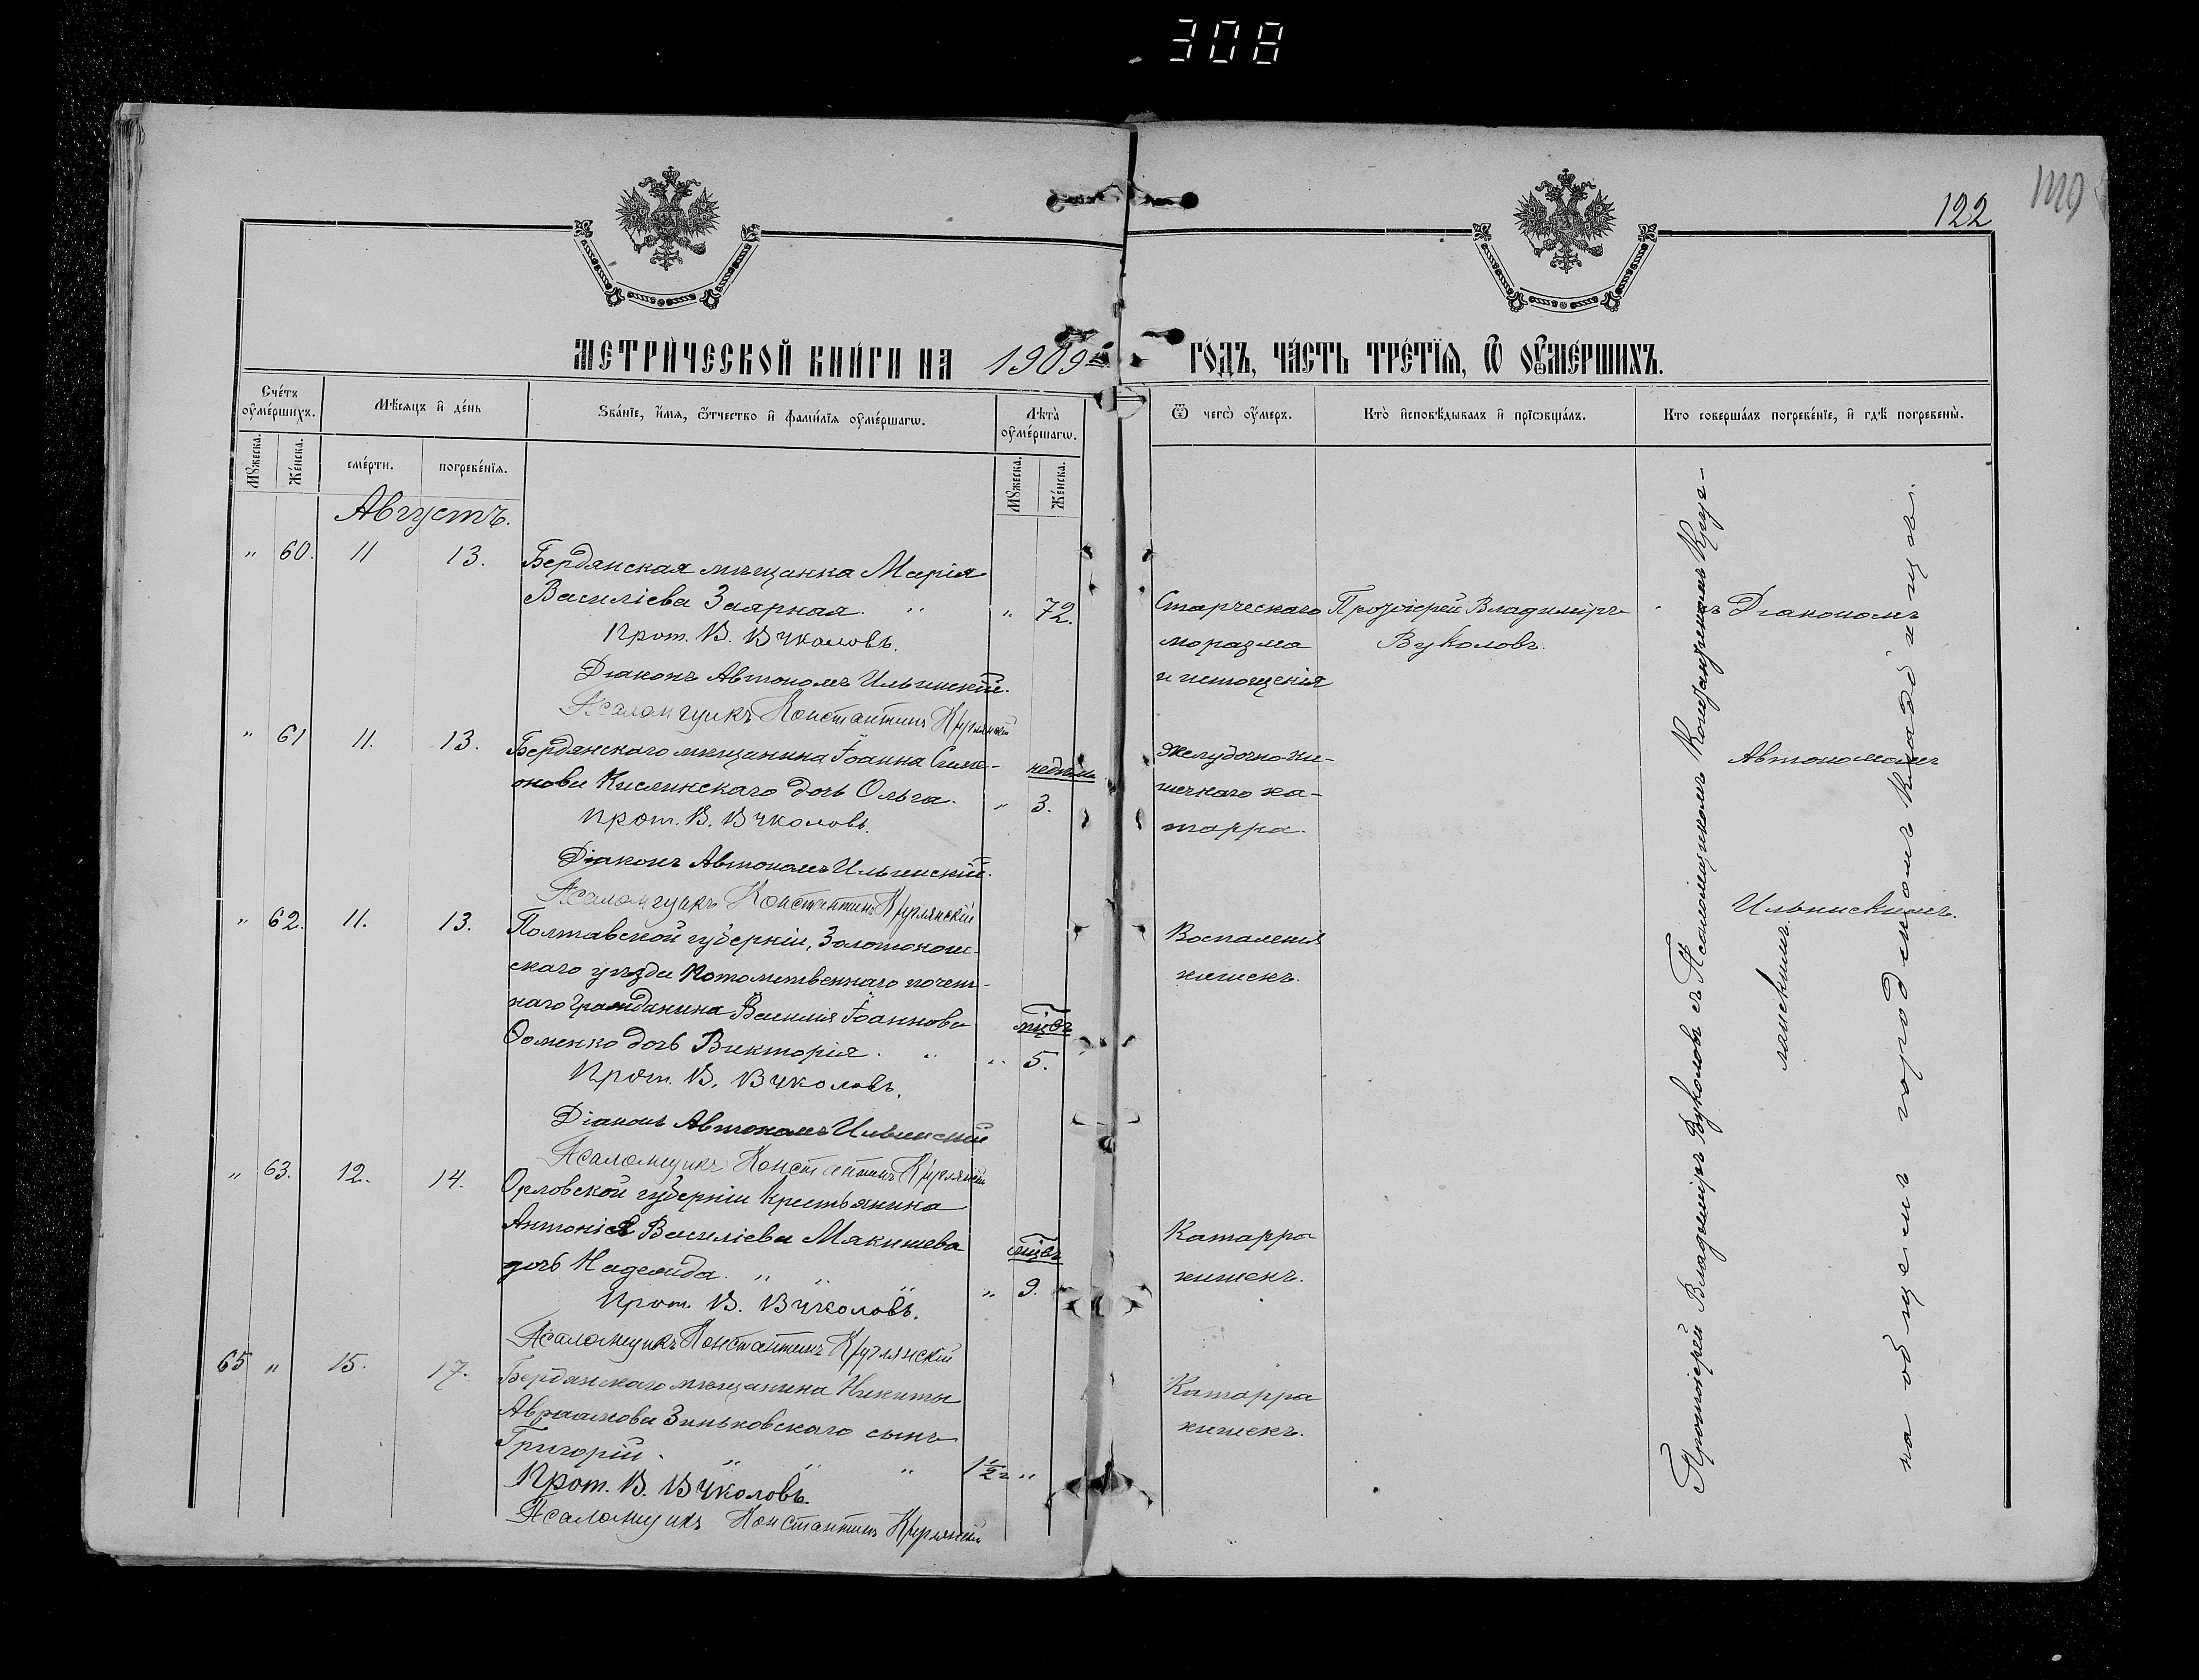 308
122
МЕТРИ́ЧЕСКОЙ КНИ́ГИ НА 1909й ГО́ДЪ, ЧА́СТЬ ТРЕ́ТЇѦ, Ѡ ОУМЕ́РШИХЪ.
Сче́тъ оумéршихъ.
Мꙋжеска.
Же́нска.
Мѣ́сѧцъ и де́нь
смéрти.
погребе́нїѧ.
Ѕва́нїе, и́мѧ, ѻ́тчество и фами́лїѧ оумéршагѡ.
Лѣ́та оумéршагѡ.
Мꙋжеска.
Же́нска.
Ѿ чегѡ̀ оу́меръ.
Кто̀ исповѣ́дывалъ и прїѡбща́лъ.
Кто соверша́лъ погребе́нїе, и гдѣ̀ погребены̀.
Августъ.
" 60. 11 13. Бердянская мѣщанка Марія
Василіева Заярная. " " 72.
Прот. В. Вуколовъ.
Діаконъ Автономъ Ильинскій.
Псаломщикъ Константинъ Круглянскій
Старческаго
моразма
и истощенія
Протоіерей Владиміръ
Вуколовъ.
" 61 11. 13. Бердянскаго мѣщанина Іоанна Симе-
онова Кислинскаго дочь Ольга. " недѣли 3.
Прот. В. Вуколовъ.
Діаконъ Автономъ Ильинскій.
Псаломщикъ Константинъ Круглянскій
Желудочно-ки-
шечнаго ка-
тарра.
" 62. 11. 13. Полтавской губерніи, Золотонош-
скаго уѣзда Потомственнаго почет-
наго Гражданина Василія Іоаннова
Фоменко дочь Викторія. " " мѣсц. 5.
Прот. В. Вуколовъ.
Діаконъ Автономъ Ильинскій
Псаломщикъ Константинъ Круглянскій
Воспаленія
кишекъ.
" 63. 12. 14. Орловской губерніи Крестьянина
Антонія Василіева Мякишева
дочь Надежда. " " " " 9.
Прот. В. Вуколовъ.
Псаломщикъ Константинъ Круглянскій
Катарра
кишекъ.
65 " 15. 17. Бердянскаго мѣщанина Никиты
Авраамова Зиньковскаго сынъ
Григорій. " " " 1½ г "
Прот. В. Вуколовъ.
Псаломщикъ Константинъ Круглянскій
Катарра
кишекъ.
Протоіерей Владиміръ Вуколовъ съ Псаломщикомъ Константиномъ Круг-
лянскимъ
ъ Діакономъ
Автономомъ
Ильинскимъ.
на общемъ городскомъ кладбищѣ.